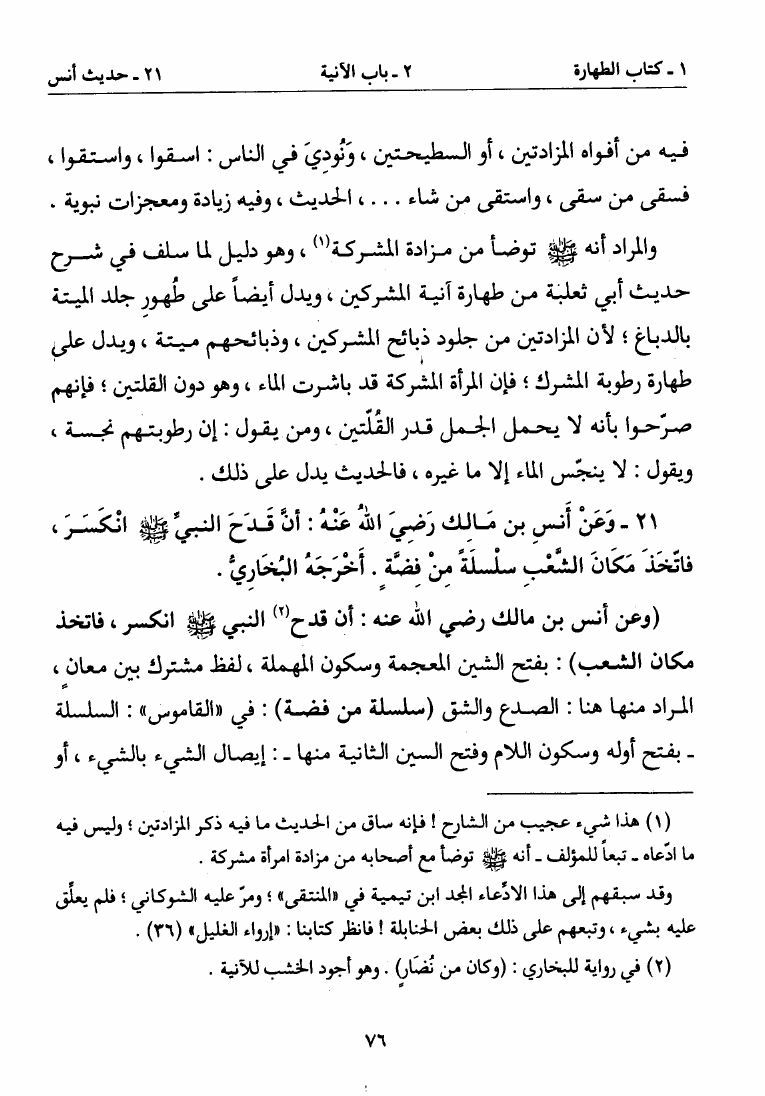 ١ ـ كتاب الطهارة ٢ ـ باب الآنية ٢١ ـ حديث أنس
فيه من أفواه المزادتين ، أو السطيحتين ، وَنُودِيَ في الناس : اسقوا ، واستقوا ،
فسقى من سقى ، واستقى من شاء . . . ، الحديث ، وفيه زيادة ومعجزات نبوية .
والمراد أنه ﷺ توضأ من مزادة المشركة(١) ، وهو دليل لما سلف في شرح
حديث أبي ثعلبة من طهارة آنية المشركين ، ويدل أيضاً على طُهورِ جلد الميتة
بالدباغ ؛ لأن المزادتين من جلود ذبائح المشركين ، وذبائحهم ميتة ، ويدل على
طهارة رطوبة المشرك ؛ فإن المرأة المشركة قد باشرت الماء ، وهو دون القلتين ؛ فإنهم
صرّحوا بأنه لا يحمل الجمل قدر القُلّتين ، ومن يقول : إن رطوبتهم نجسة ،
ويقول : لا ينجّس الماء إلا ما غيره ، فالحديث يدل على ذلك .
٢١ ـ وَعَنْ أَنسِ بن مَالِك رَضِيَ اللهُ عَنْهُ : أنَّ قَدَحَ النبيِّ ﷺ انْكَسَرَ ،
فاتّخَذَ مَكَانَ الشَّعْبِ سلْسلَةً مِنْ فِضَّةٍ . أَخْرَجَهُ البُخَارِيُّ .
(وعن أنس بن مالك رضي الله عنه : أن قدح(٢) النبي ﷺ انكسر ، فاتخذ
مكان الشعب) : بفتح الشين المعجمة وسكون المهملة ، لفظ مشترك بين معانٍ ،
المراد منها هنا : الصدع والشق (سلسلة من فضة) : في «القاموس» : السلسلة
ـ بفتح أوله وسكون اللام وفتح السين الثانية منها ـ : إيصال الشيء بالشيء ، أو
(١) هذا شيء عجيب من الشارح ! فإنه ساق من الحديث ما فيه ذكر المزادتين ؛ وليس فيه
ما ادّعاه ـ تبعاً للمؤلف ـ أنه ﷺ توضأ مع أصحابه من مزادة امرأة مشركة .
وقد سبقهم إلى هذا الادِّعاء المجد ابن تيمية في «المنتقى» ؛ ومرّ عليه الشوكاني ؛ فلم يعلِّق
عليه بشيء ، وتبعهم على ذلك بعض الحنابلة ! فانظر كتابنا : «إرواء الغليل» (٣٦) .
(٢) في رواية للبخاري : (وكان من نُضَارٍ) . وهو أجود الخشب للآنية .
٧٦